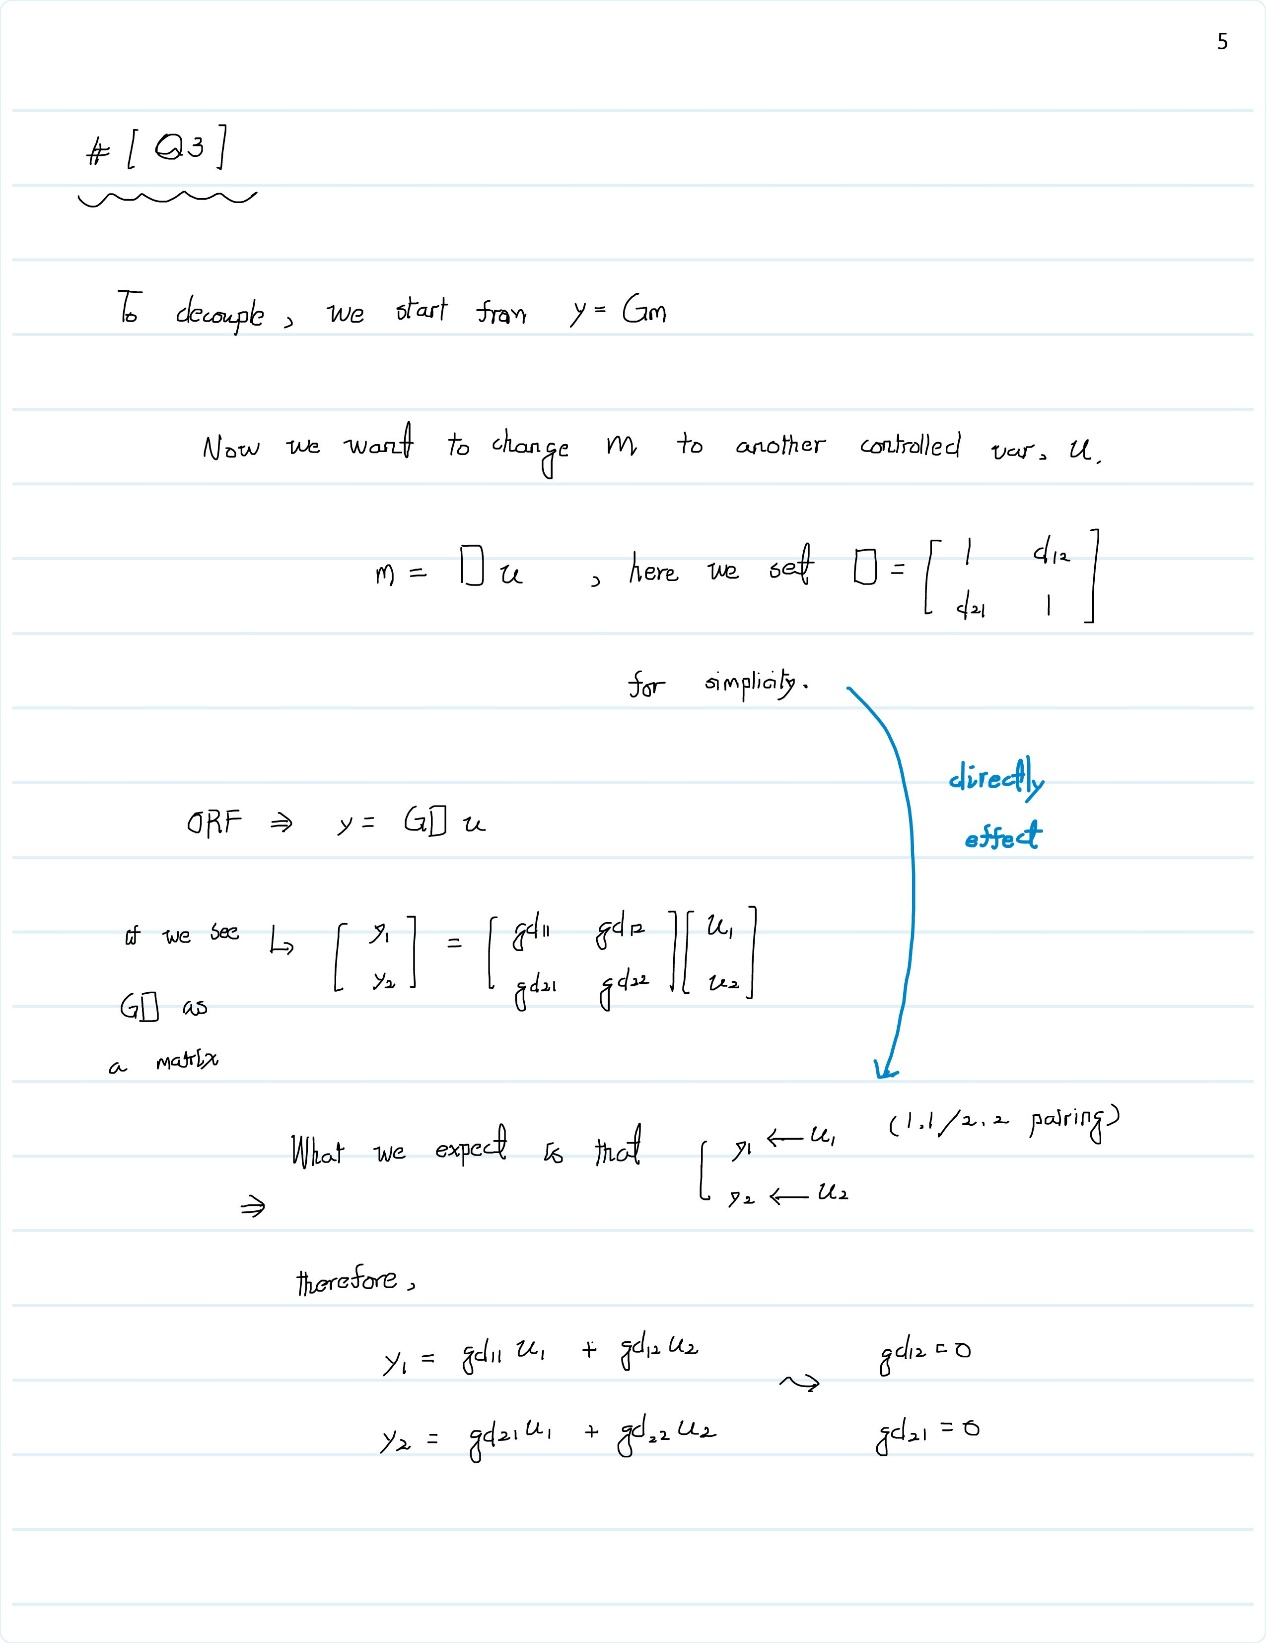 5
# [ Q3 ]
To decouple, we start from y = Gm
Now we want to change m to another controlled var. u.
m = D u , here we set D = [ 1 d12
d21 1 ]
for simplicity.
directly
effect
ORF ⇒ y = GD u
if we see ↳ [ y1 y2 ] = [ gd11 gd12 gd21 gd22 ] [ u1 u2 ]
GD as
a matrix
⇒ What we expect is that { y1 ← u1 (1.1/2.2 pairing)
y2 ← u2
therefore,
y1 = gd11 u1 + gd12 u2 ⇝ gd12 = 0
y2 = gd21 u1 + gd22 u2 gd21 = 0